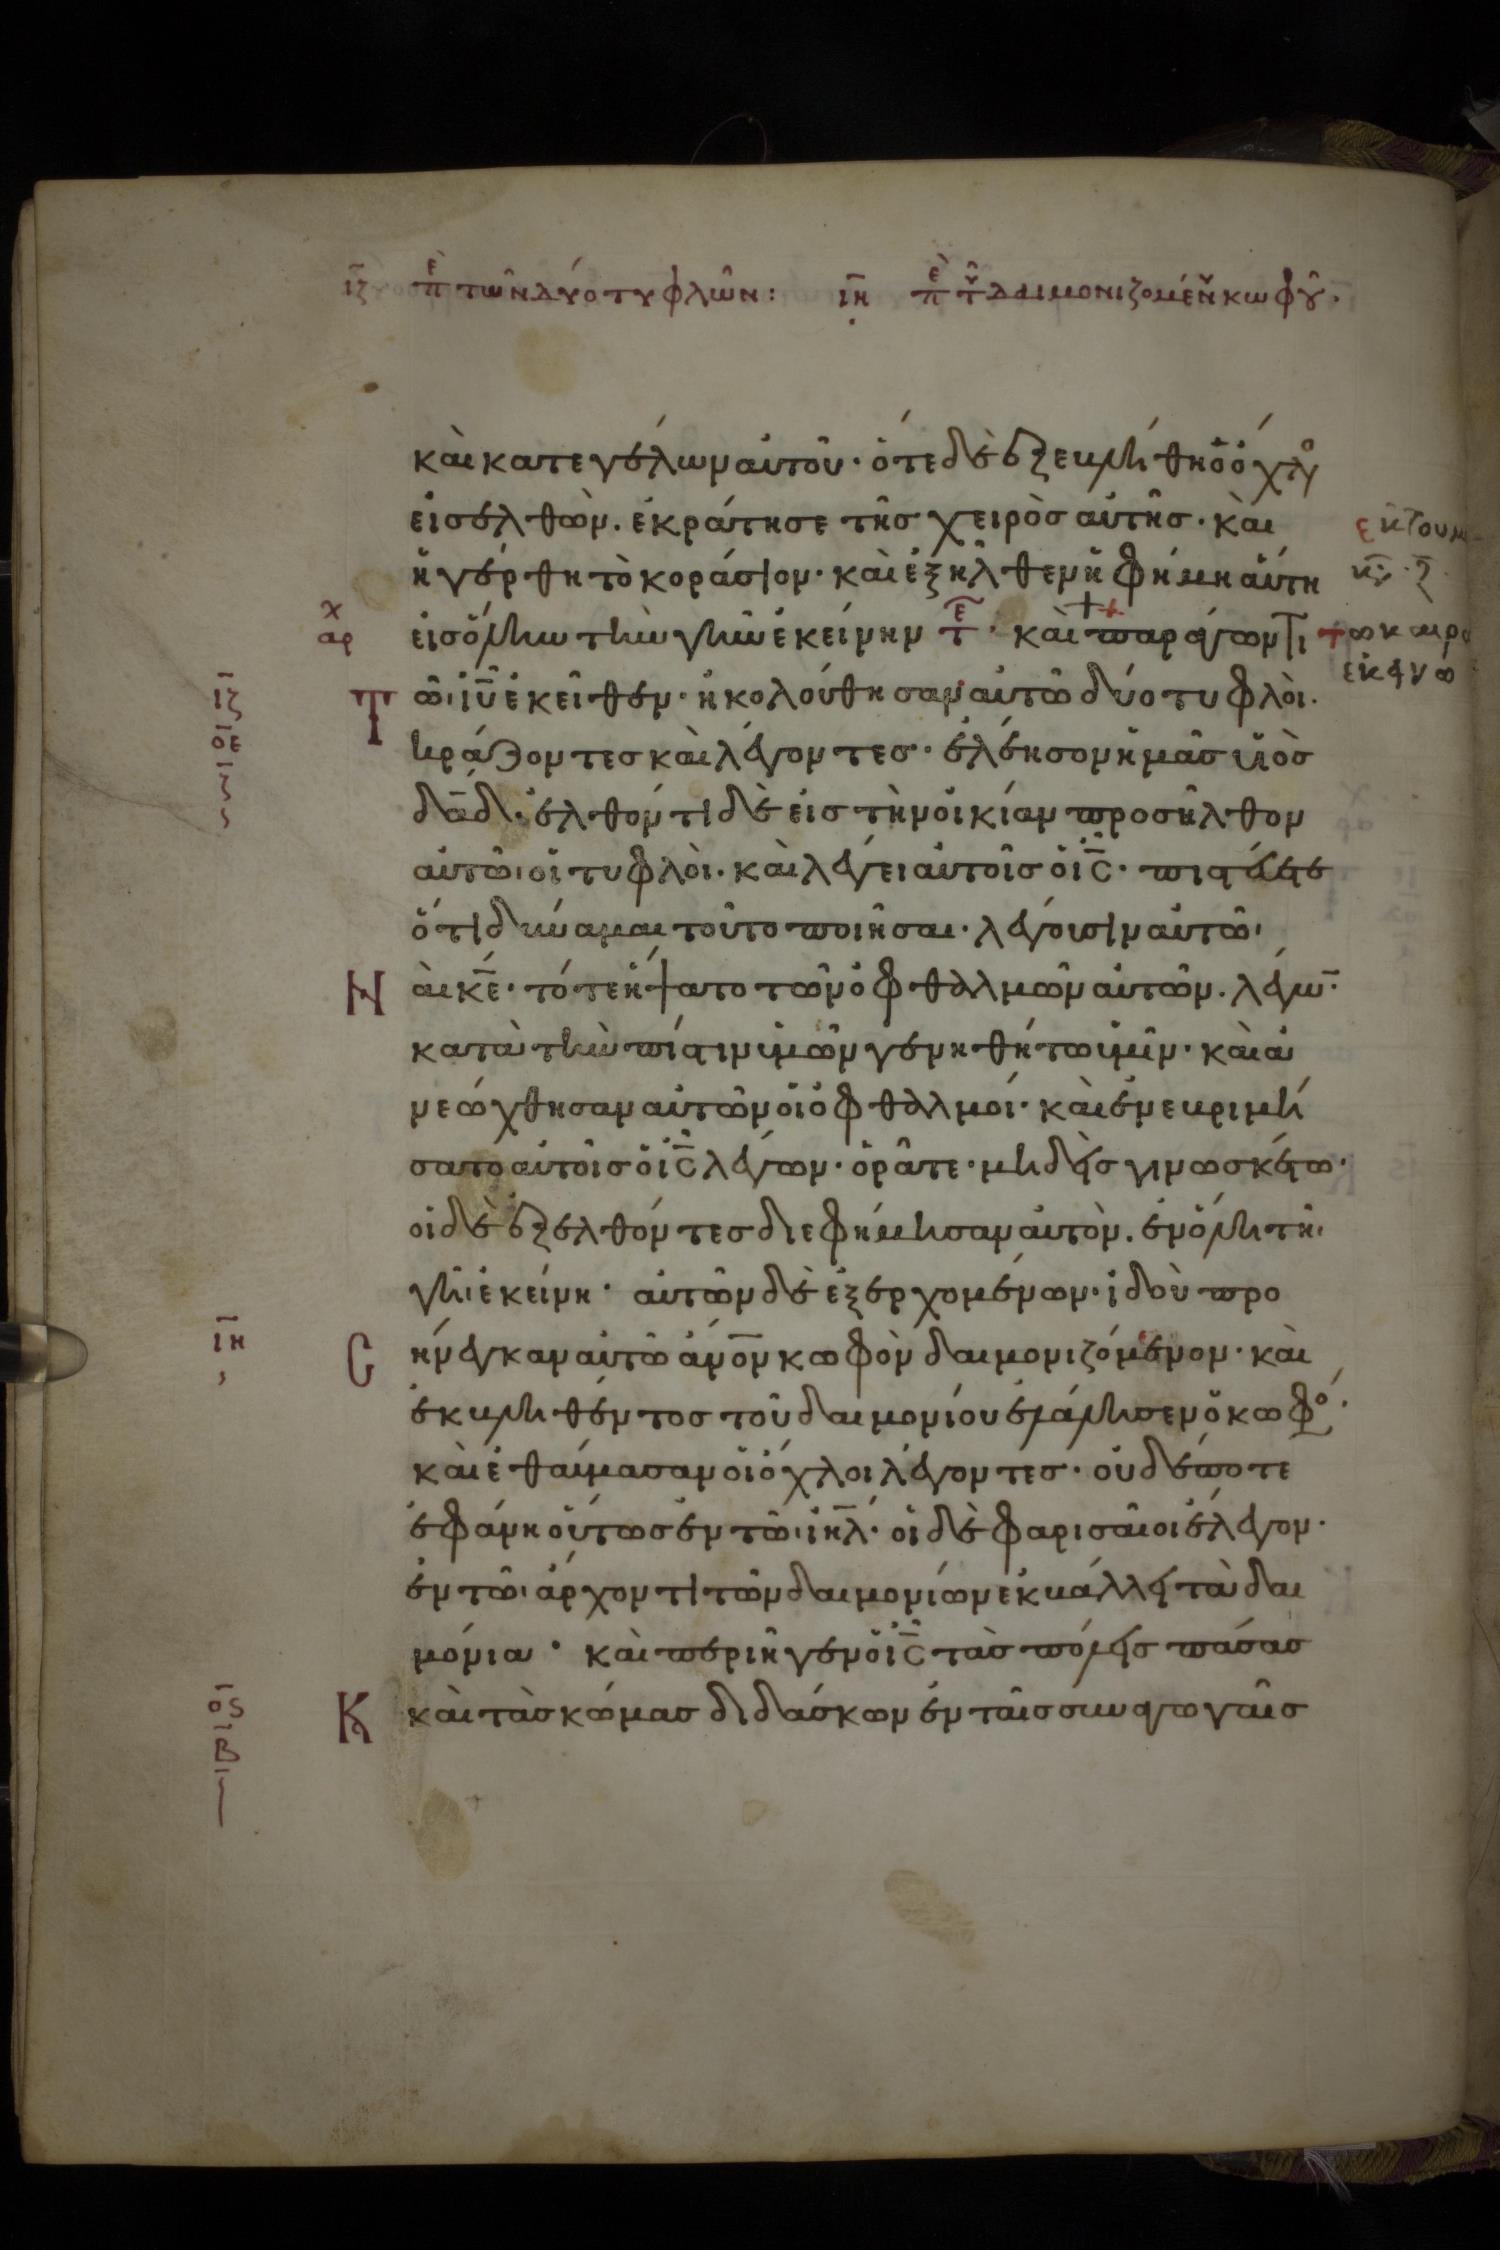 ιζ πε τῶν δύο τυφλῶν: ιη πε τοῦ δαιμονιζομένου κωφοῦ.
καὶ κατεγέλων αὐτοῦ· ὅτε δὲ ἐξεβλήθη ὁ ὄχλο
εἰσελθὼν. ἐκράτησε τῆς χειρὸς αὐτῆς· καὶ
ἠγέρθη τὸ κοράσιον· καὶ ἐξῆλθεν ἡ φήμη αὕτη
χ
αρ
εἰς ὅλην τὴν γῆν ἐκείνην τε· καὶ παράγοντι
τω καιρω
εκεινω
ιζ
οε
ζ
τῶ ιυ ἐκεῖθεν· ἠκολούθησαν αὐτῶ δύο τυφλοὶ.
κράζοντες καὶ λέγοντες· ἐλέησον ἡμᾶς υἱὸς
δαδ. ἐλθόντι δὲ εἰς τὴν οἰκίαν προσῆλθον
αὐτῶ οἱ τυφλοὶ. καὶ λέγει αὐτοῖς ὁ ις· πιστεύετε
ὅτι δύναμαι τοῦτο ποιῆσαι· λέγουσιν αὐτῶ
Ναὶ κε· τότε ἥψατο τῶν ὀφθαλμῶν αὐτῶν. λέγω
κατὰ τὴν πίστιν ὑμῶν γενηθήτω ὑμῖν· καὶ ἀ
νεώχθησαν αὐτῶν οἱ ὀφθαλμοί· καὶ ἐνεβριμή
σατο αὐτοῖς ὁ ις λέγων· ὁρᾶτε· μηδεὶς γινωσκέτω·
οἱ δὲ ἐξελθόντες διεφήμησαν αὐτὸν. ἐν ὅλη τῆ
γῆ ἐκείνη· αὐτῶν δὲ ἐξερχομένων· ἰδοὺ προ
ιη
Σ
ήνεγκαν αὐτῶ ανον κωφὸν δαιμονιζόμενον· καὶ
ἐκβληθέντος τοῦ δαιμονίου ἐλάλησεν ὁ κωφό·
καὶ ἐθαύμασαν οἱ ὄχλοι λέγοντες· οὐδέποτε
ἐφάνη οὕτως ἐν τῶ ιηλ· οἱ δὲ φαρισαῖοι ἔλεγον·
ἐν τῶ ἄρχοντι τῶν δαιμονίων ἐκβάλλει τὰ δαι
μόνια· καὶ περιῆγεν ὁ ις τὰς πόλεις πάσας
ος
β
Κ
καὶ τὰς κώμας διδάσκων ἐν ταῖς συναγωγαῖς